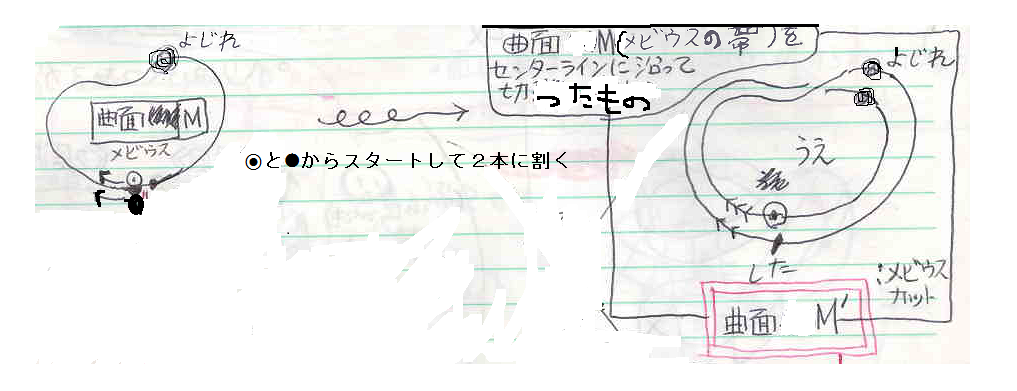 よじれ
曲面 M
メビウス
◉と●からスタートして２本に割く
曲面 M(メビウスの帯)を
センターラインに沿って
切ったもの
よじれ
うえ
した
:メビウス
カット
曲面 M'